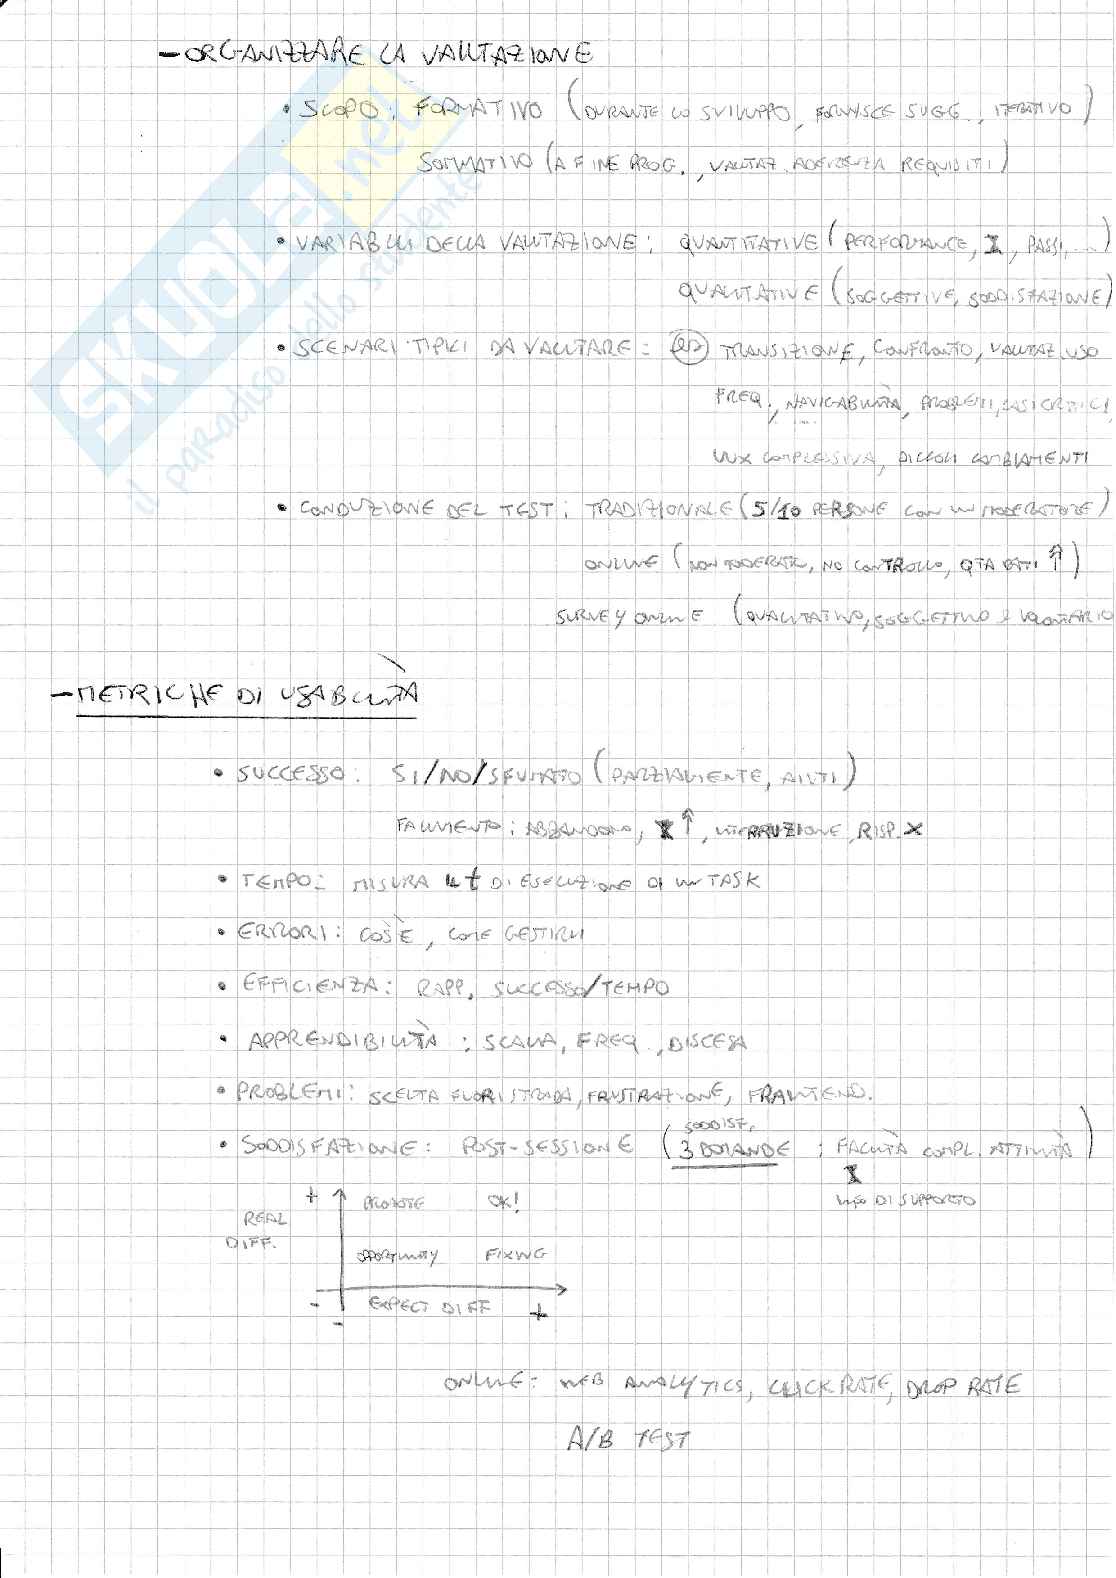 - ORGANIZZARE LA VALUTAZIONE
• SCOPO: FORMATIVO (DURANTE LO SVILUPPO, FORNISCE SUGG., ITERATIVO)
SOMMATIVO (A FINE PROG., VALUTAZ. ADERENZA REQUISITI)
• VARIABILI DELLA VALUTAZIONE: QUANTITATIVE (PERFORMANCE, PASSI, ...)
QUALITATIVE (SOGGETTIVE, SODDISFAZIONE)
• SCENARI TIPICI DA VALUTARE: TRANSIZIONE, CONFRONTO, VALUTAZ. USO
FREQ., NAVIGABILITÀ, PROBLEMI, CASI CRITICI,
UX COMPLESSIVA, PICCOLI CAMBIAMENTI
• CONDUZIONE DEL TEST: TRADIZIONALE (5/10 PERSONE CON UN MODERATORE)
ONLINE (NON MODERATI, NO CONTROLLO, QTA DATI ↑)
SURVEY ONLINE (QUALITATIVO, SOGGETTIVO E VOLONTARIO
- METRICHE DI USABILITÀ
• SUCCESSO: SI/NO/SFUMATO (PARZIALMENTE, AIUTI)
FALLIMENTO: ABBANDONO, ↑, INTERRUZIONE, RISP. X
• TEMPO: MISURA IL t DI ESECUZIONE DI UN TASK
• ERRORI: COS'È, COME GESTIRLI
• EFFICIENZA: RAPP. SUCCESSO/TEMPO
• APPRENDIBILITÀ: SCALA, FREQ., DISCESA
• PROBLEMI: SCELTA FUORI STRADA, FRUSTRAZIONE, FRAINTEND.
SODDISF.
• SODDISFAZIONE: POST-SESSIONE (3 DOMANDE; FACILITÀ COMPL. ATTIVITÀ)
INFO DI SUPPORTO
+ PROMOTE OK!
REAL DIFF.
OPPORTUNITY FIXING
- EXPECT DIFF +
-
ONLINE: WEB ANALYTICS, CLICK RATE, DROP RATE
A/B TEST
SKUOLA.net
il paradiso dello studente